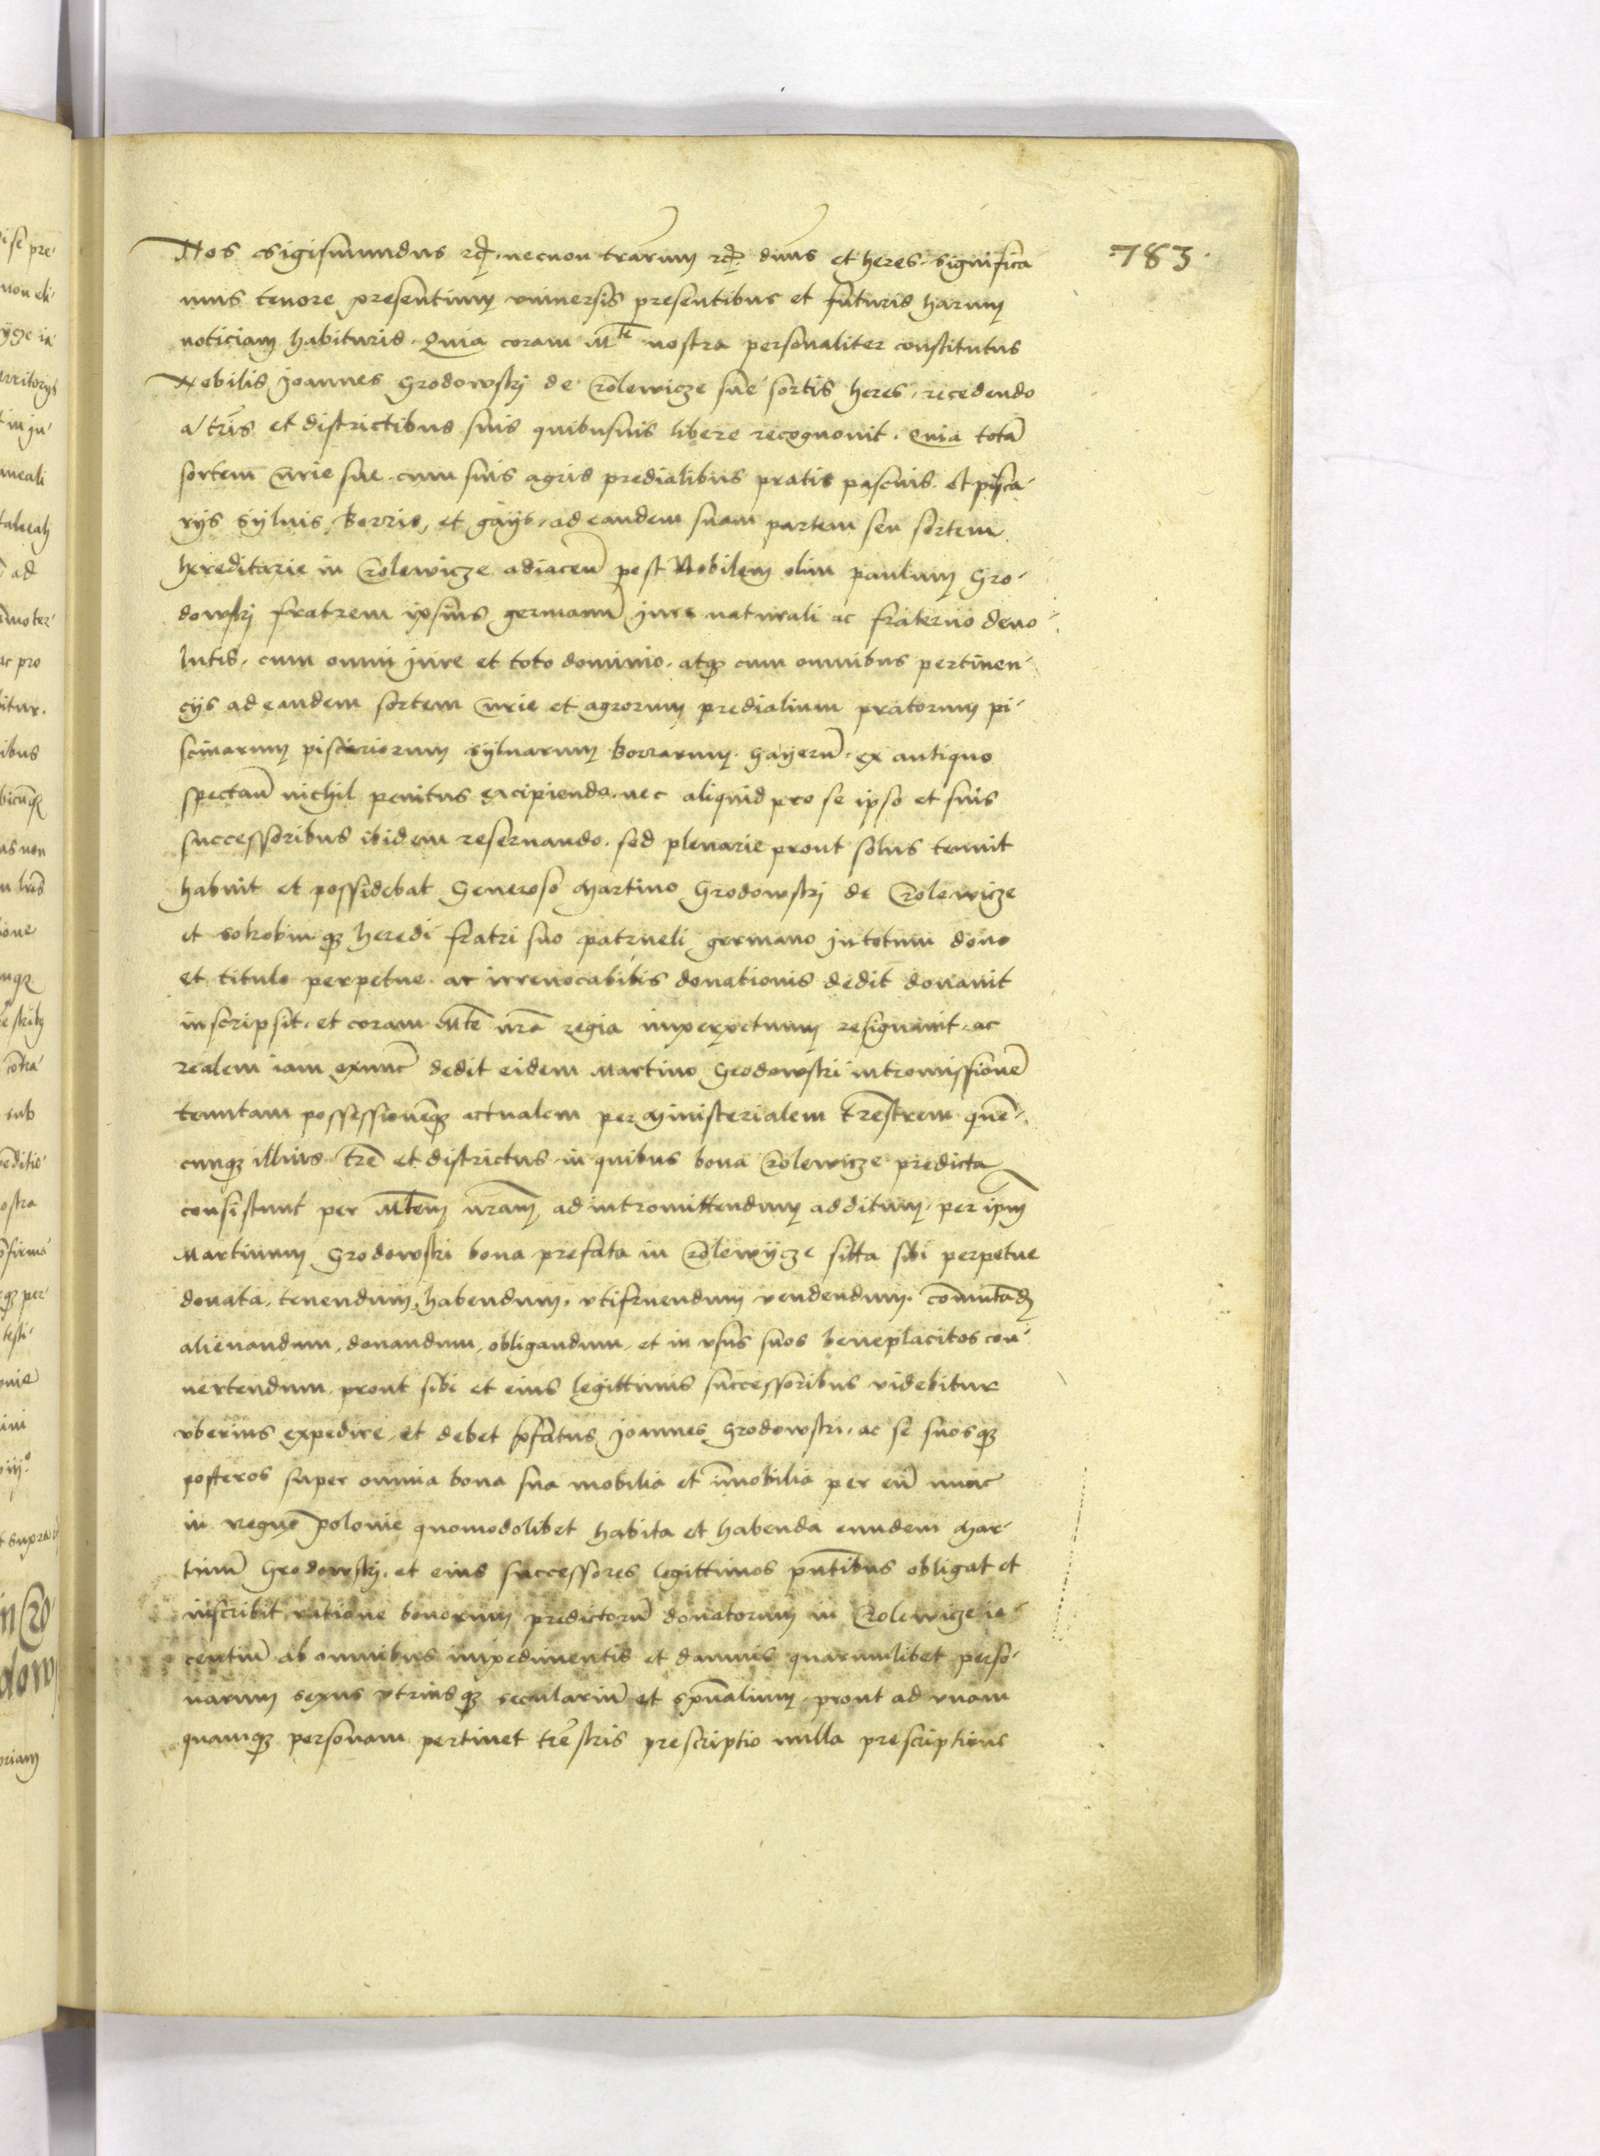 783.
Nos Sigismundus etc. necnon terrarum etc. dnus et heres. Significa
mus tenore presentium vniuersis presentibus et futuris harum
noticiam habituris. Quia coram Mte nostra personaliter constitutus
Nobilis Joannes Grodowskj de Crolewicze sue sortis heres, recedendo
a tris et districtibus suis quibusuis libere recognouit. Quia totā
sortem curie sue cum suis agris predialibus pratis pascuis et pisca-
rijs syluis, borris, et gays, ad eandem suam partem seu sortem
hereditarie in Crolewicze adiacen post Nobilem olim paulum Gro-
dowskj fratrem ipsius germanū jure naturali ac fraterno deuo-
lutis, cum omni jure et toto dominio, atq3 cum omnibus pertinen-
cijs ad eandem sortem curie et agrorum predialium pratorum pi-
scinarum piscariorum syluarum borrarum, Gayorū ex antiquo
spectan nichil penitus excipiendo, nec aliquid pro se ipso et suis
successoribus ibidem reseruando, sed plenarie prout solus tenuit
habuit et possidebat Generoso Martino Grodowskj de Crolewicze
et heredi fratri suo patrueli germano in totum dono
et titulo perpetue ac irreuocabilis donationis dedit donauit
inscripsit, et coram Mte nrā regia imperpetuum resignauit, ac
realem iam exnunc dedit eidem Martino Grodowski intromissionē
tenutam possessionēq3 actualem per Ministerialem trēstrem quē-
cunq3 illius tre et districtus in quibus bona Crolewicze predicta
consistunt per Mtem nram ad intromittendum additum, per ipm
Martinum Grodowski bona prefata in Crolewycze sitta sibi perpetue
donata, tenendum, habendum, vtifruendum vendendum, comutād
alienandum, donandum, obligandum, et in vsus suos beneplacitos con-
uertendum, prout sibi et eius legittimis successoribus videbitur
vberius expedire, et debet pfatus Joannes Grodowski, ac se suosq3
posteros super omnia bona sua mobilia et imobilia per eū nunc
in regno polonie quomodolibet habita et habenda eundem Mar-
tinū Grodowskj, et eius successores legittimos pntibus obligat et
inscribit ratione bonorum predictorū donatorum in Crolewicze ia-
centiū ab omnibus impedimentis et damnis quarumlibet perso-
narum sexus vtriusq3 seculariū et spūalium, prout ad vnam
quamq3 personam pertinet trēstris prescriptio nulla prescriptione